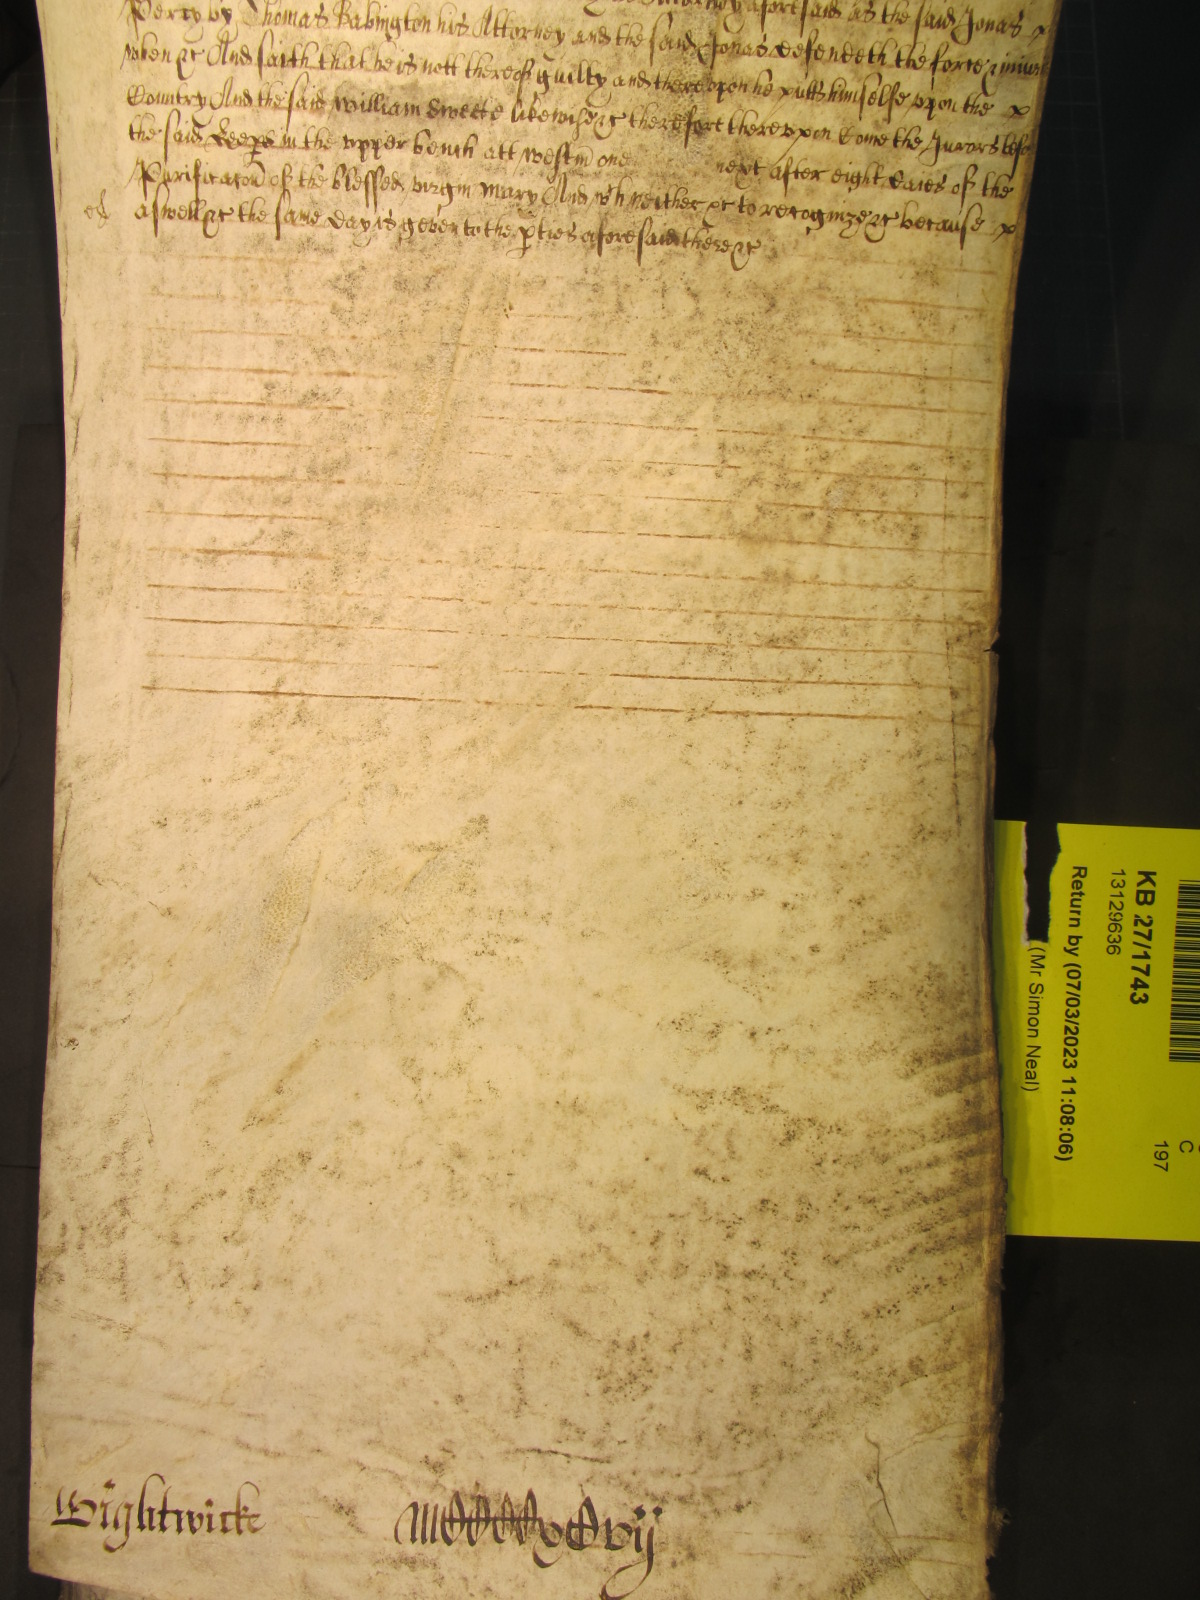 Percy by Thomas Babington his Attorney and the said Jonas defendeth the force & iniury
when &c And saith that he is nott thereof guilty and thereupon he putts himselfe vpon the x
Country And the said William Sweete likewize &c therefore therevpon Come the Jurors before
the said Keepers in the vpper bench att Westm̃ on next after eight daies of the
Purificac̃on of the blessed virgin Mary And wh neither &c to recognize &c because x
aswell &c the same day is geven to the p̱ties aforesaid there &c
Wightwicke
MCCCCxCvij
KB 27/1743
13129636
Return by (07/03/2023 11:08:06)
(Mr Simon Neal)
C
197